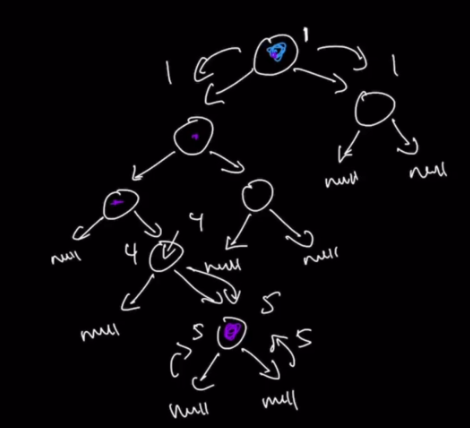 1
1 1
null null
4
null 4 null null
null
5
5 5
null null